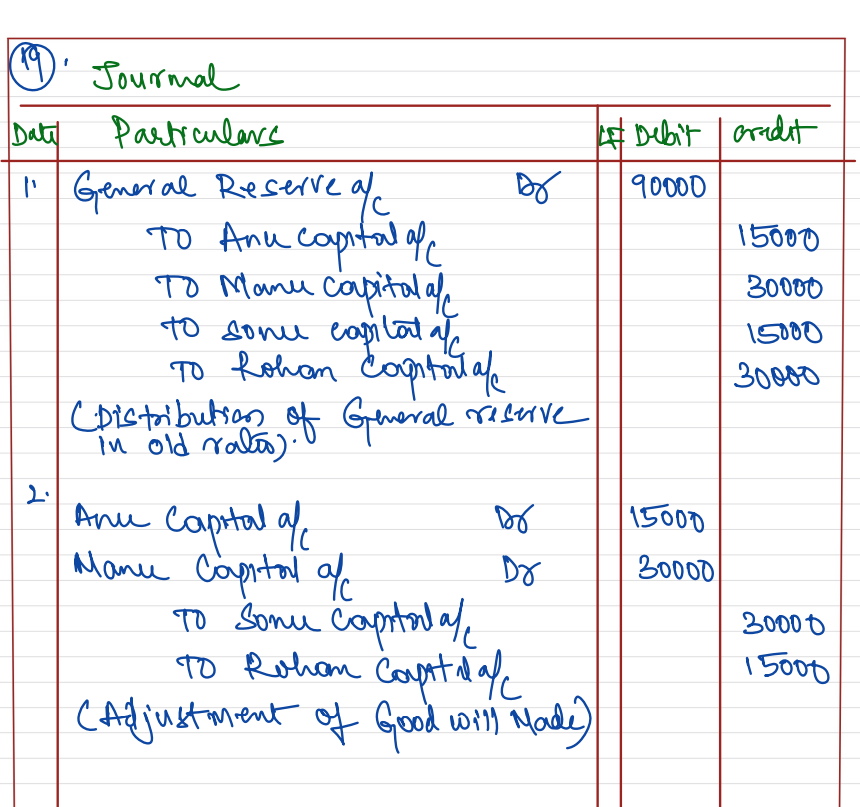 19.
Journal
Date Particulars LF Debit credit
1. General Reserve a/c Dr 90000
TO Anu capital a/c 15000
TO Manu capital a/c 30000
TO sonu capital a/c 15000
TO Rohan Capital a/c 30000
(Distribution of General reserve
in old ratio).
2.
Anu Capital a/c Dr 15000
Manu Capital a/c Dr 30000
TO Sonu Capital a/c 30000
TO Rohan Capital a/c 15000
(Adjustment of Good will Made)